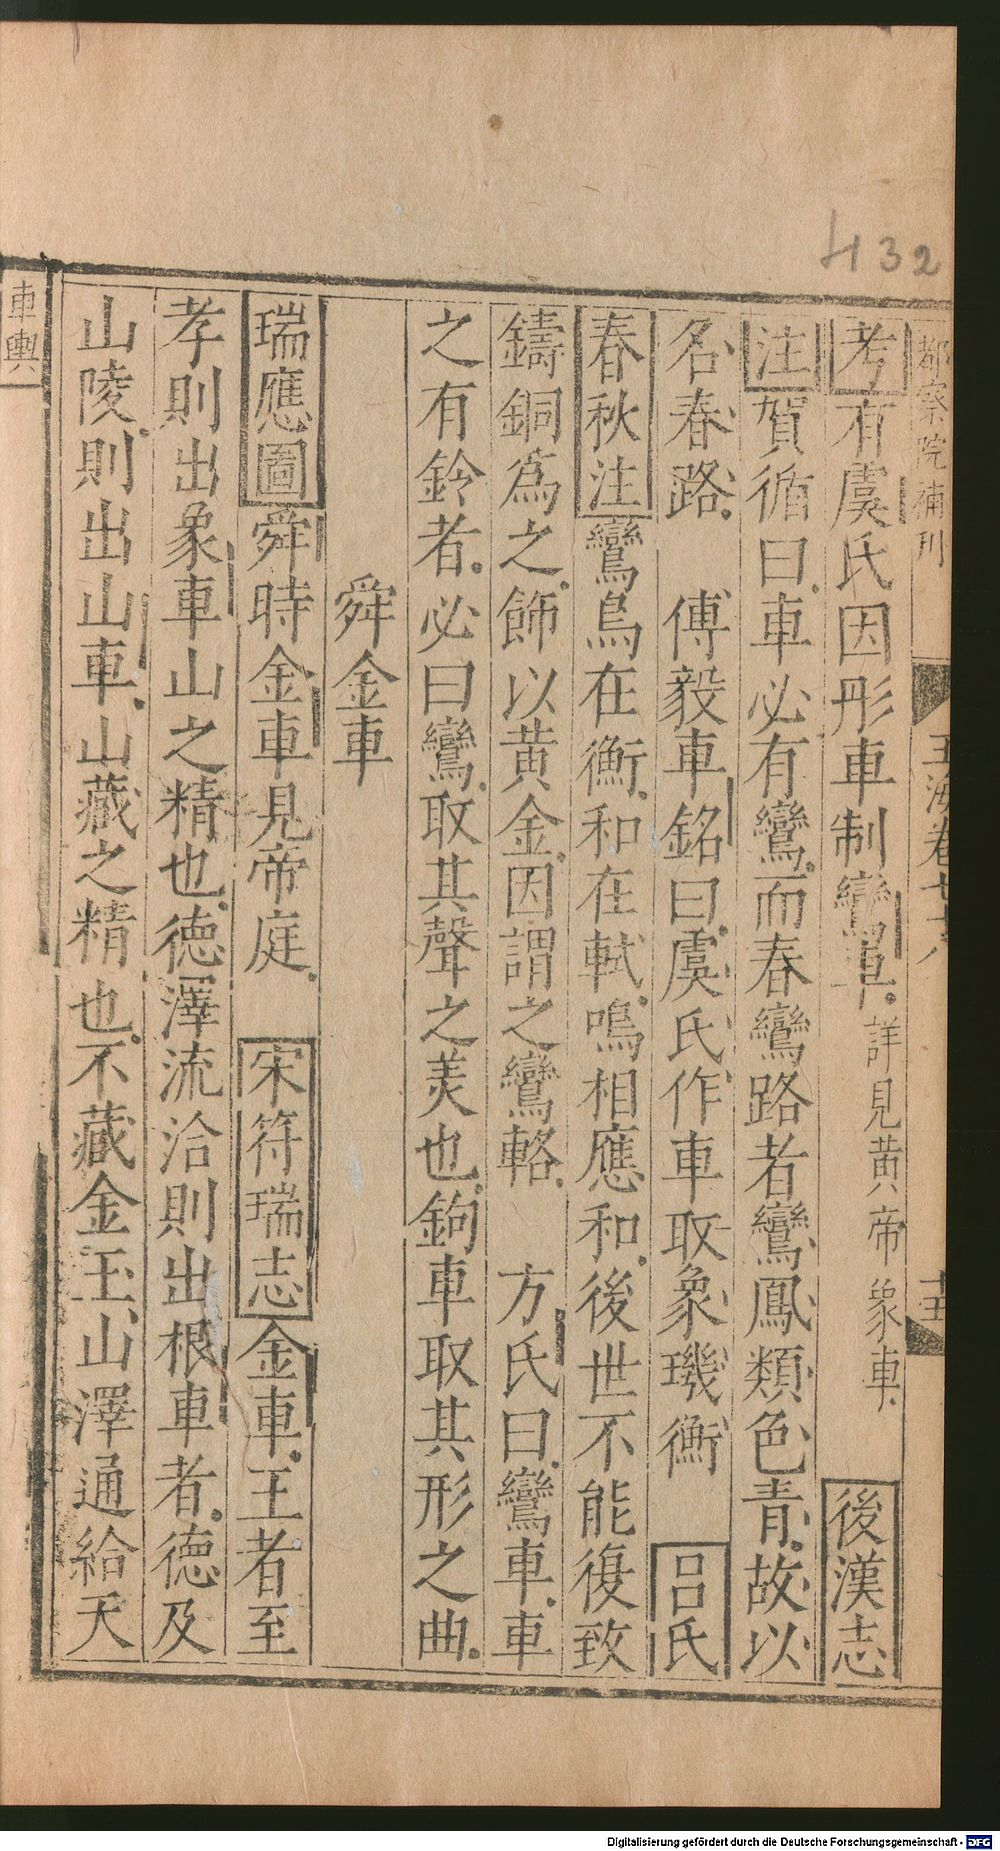 432
都察院補刊
玉海卷七十八
十五
考有虞氏因彤車制鸞車。詳見黄帝象車 後漢志
注賀循曰車必有鸞而春鸞路者鸞鳳類色青故以
名春路 傅毅車銘曰虞氏作車取象璣衡 呂氏
春秋注鸞鳥在衡和在軾鳴相應和後世不能復致
鑄銅爲之飾以黄金因謂之鸞輅 方氏曰鸞車車
之有鈴者必曰鸞取其聲之美也鉤車取其形之曲
舜金車
瑞應圖舜時金車見帝庭 宋符瑞志金車王者至
孝則出象車山之精也德澤流洽則出根車者德及
山陵則出山車山藏之精也不藏金玉山澤通給天
車輿
Digitalisierung gefördert durch die Deutsche Forschungsgemeinschaft - DFG